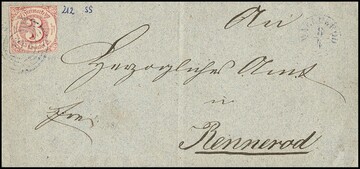 212 SS
3
An
Herzogliches Amt
in
frei
Rennerod